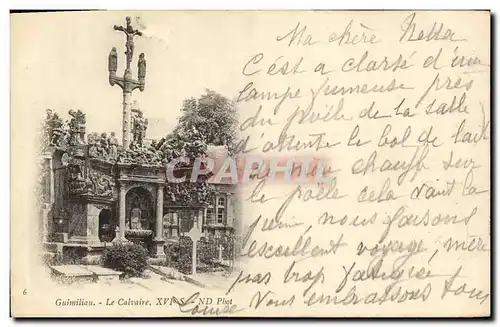 Ma chère Netta
C'est a clarté d'une
lampe fumeuse près
du poële de la salle
d'attente le bol de lait
chauffe sur
le poële cela vaut la
peine, nous faisons
excellent voyage, mère
pas trop fatiguée
Nous embrassons tous
Louise
CPArama
6
Guimiliau. - Le Calvaire, XVIe S. - ND Phot